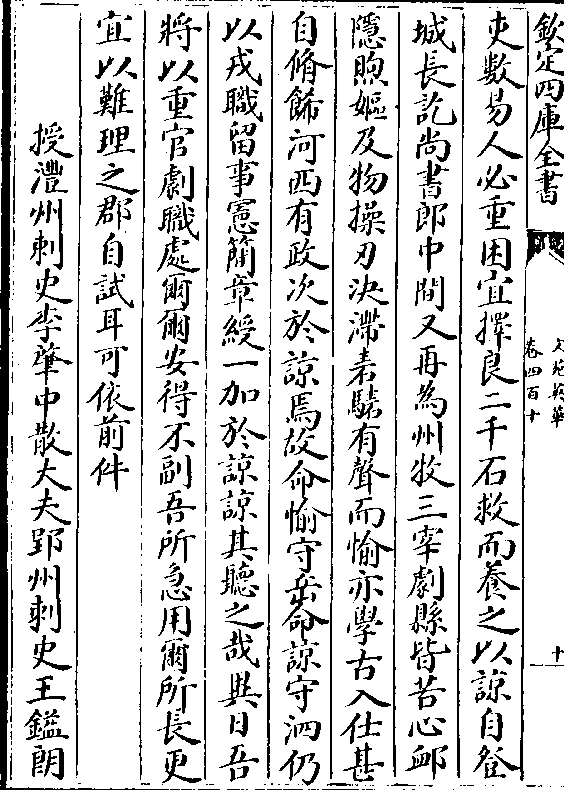 欽定四庫全書
文苑英華
卷四百十
十
吏數易人必重困宜擇良二千石救而養之以諒自登
城長訖尚書郎中間又再為州牧三宰劇縣皆苦心卹
隱煦嫗及物操刃決滯砉騞有聲而愉亦學古入仕甚
自脩飾河西有政次於諒焉故命愉守岳命諒守泗仍
以戎職留事憲簡章綬一加於諒諒其聽之哉異日吾
將以重官劇職處爾爾安得不副吾所急用爾所長更
宜以難理之郡自試耳可依前件
授澧州刺史李肇中散大夫郢州刺史王鎰朗